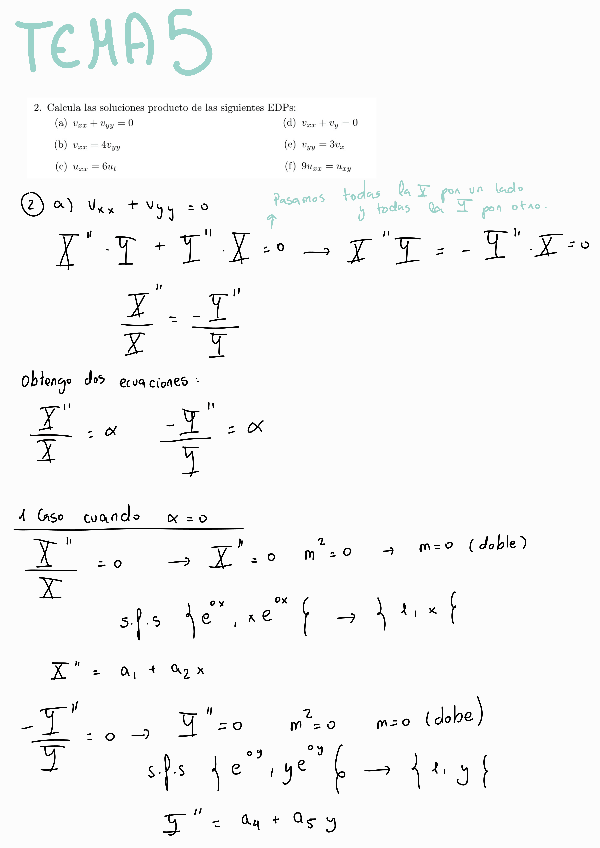 TEMA 5
2. Calcula las soluciones producto de las siguientes EDPs:
(a) v_xx + v_yy = 0 (d) v_xx + v_y = 0
(b) v_xx = 4v_yy (e) v_yy = 3v_x
(c) u_xx = 6u_t (f) 9u_xx = u_xy
Pasamos todas la X por un lado
y todas la Y por otro.
② a) v_xx + v_yy = 0
X'' · Y + Y'' · X = 0 → X'' Y = - Y'' · X = 0
X''/X = - Y''/Y
Obtengo dos ecuaciones:
X''/X = α -Y''/Y = α
1 Caso cuando α = 0
X''/X = 0 → X'' = 0 m² = 0 → m = 0 (doble)
s.f.s {e^0x, x e^0x} → {1, x}
X'' = a₁ + a₂ x
-Y''/Y = 0 → Y'' = 0 m² = 0 m = 0 (dobe)
s.f.s {e^0y, y e^0y} → {1, y}
Y'' = a₄ + a₅ y